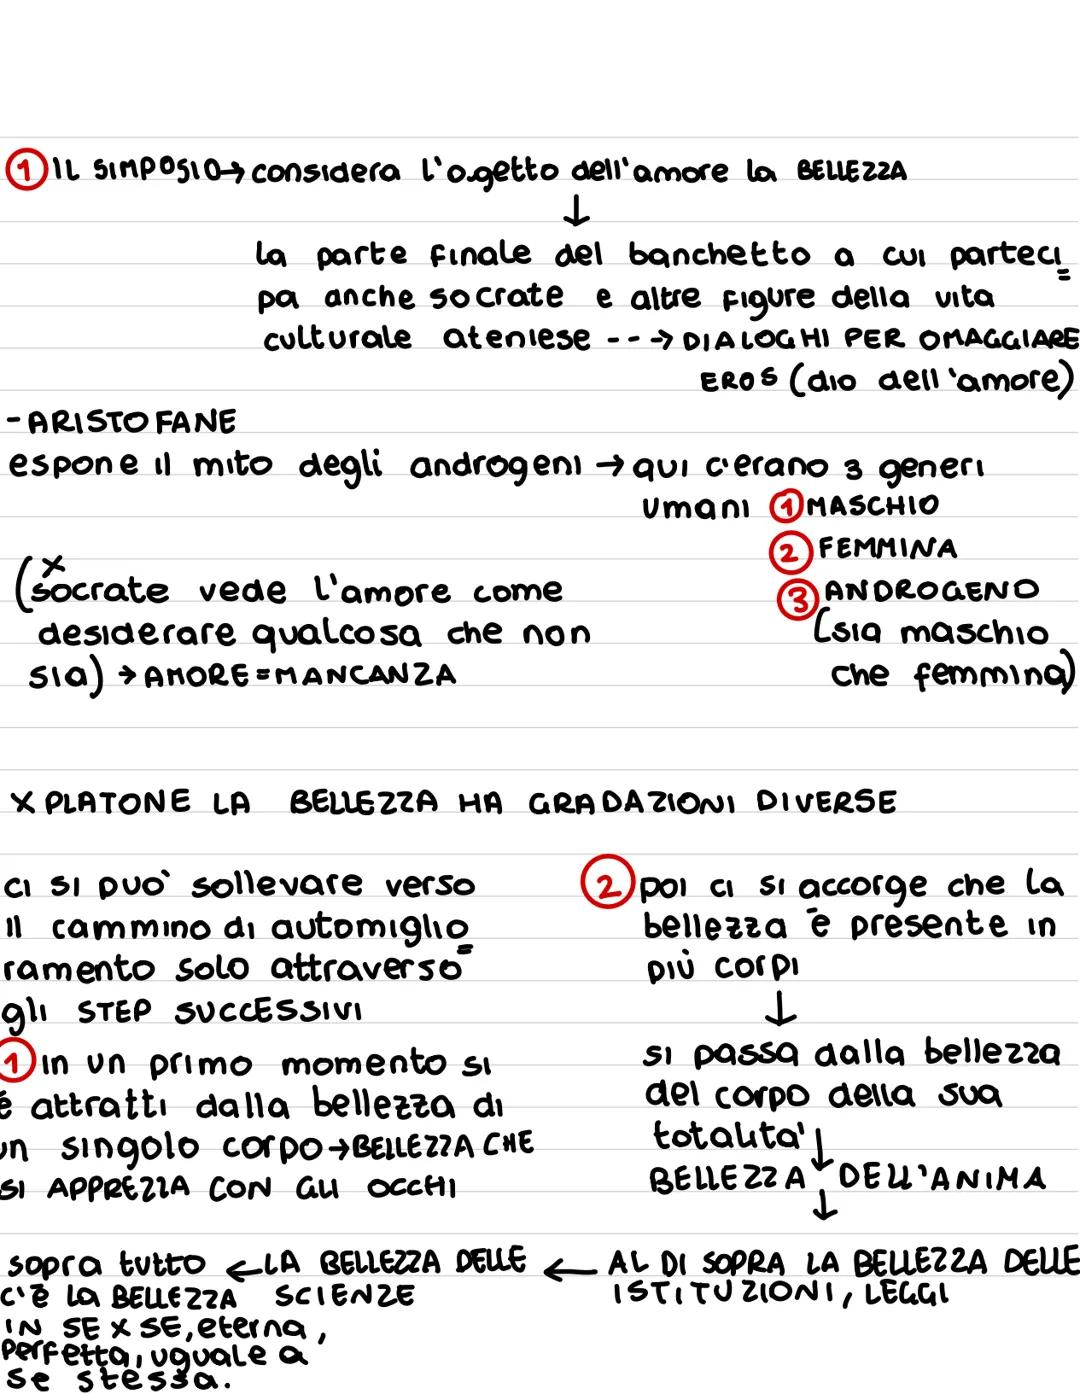 1 IL SIMPOSIO→ considera l'ogetto dell'amore la BELLEZZA
↓
la parte finale del banchetto a cui parteci=
pa anche socrate e altre figure della vita
culturale ateniese ---→ DIALOGHI PER OMAGGIARE
EROS (dio dell'amore)
- ARISTOFANE
espone il mito degli androgeni → qui c'erano 3 generi
umani 1 MASCHIO
2 FEMMINA
3 ANDROGENO
(sia maschio
che femmina)
(x
socrate vede l'amore come
desiderare qualcosa che non
sia) → AMORE=MANCANZA
X PLATONE LA BELLEZZA HA GRADAZIONI DIVERSE
ci si può sollevare verso
il cammino di automiglio=
ramento solo attraverso
gli STEP SUCCESSIVI
1 in un primo momento si
é attratti dalla bellezza di
un singolo corpo→BELLEZZA CHE
SI APPREZZA CON GLI OCCHI
2 poi ci si accorge che la
bellezza è presente in
più corpi
↓
si passa dalla bellezza
del corpo della sua
totalita' ↓
BELLEZZA DELL'ANIMA
↓
AL DI SOPRA LA BELLEZZA DELLE
ISTITUZIONI, LEGGI
← LA BELLEZZA DELLE
SCIENZE
← sopra tutto
c'è la BELLEZZA
IN SE X SE, eterna,
perfetta, uguale a
se stessa.